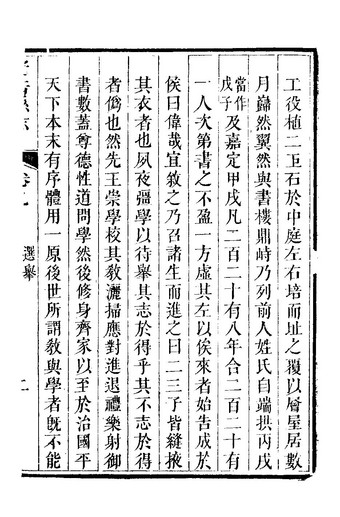 工役植二巨石於中庭左右培而址之覆以層屋居數
月巋然翼然與書樓鼎峙乃列前人姓氏自端拱丙戌
當作戊子及嘉定甲戌凡二百二十有八年合二百二十有
一人次第書之不盈一方虛其左以俟來者始告成於
侯曰偉哉宜敘之乃召諸生而進之曰二三子皆縫掖
其衣者也夙夜彊學以待舉其志於得乎其不志於得
者僞也然先王崇學校其敎灑掃應對進退禮樂射御
書數蓋尊德性道問學然後修身齊家以至於治國平
天下本末有序體用一原後世所謂敎與學者旣不能
卷九
選舉
二